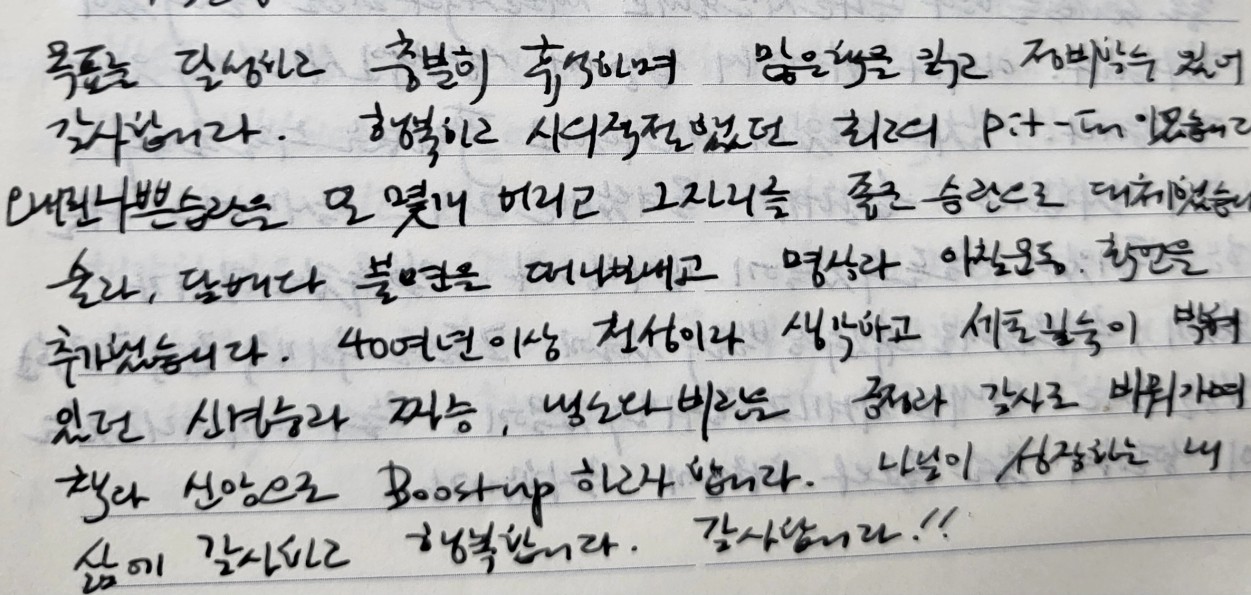 목표를 달성하고 충분히 휴식하며 많은 책을 읽고 정비할 수 있어
감사합니다. 행복하고 시의적절했던 최고의 Pit-In 이었습니다
오래된 나쁜 습관을 또 몇개 버리고 그 자리를 좋은 습관으로 대체했습니다
술과, 담배와 불면을 떠나보내고 명상과 아침운동, 확언을
추가했습니다. 40여년 이상 천성이라 생각하고 세포 깊숙이 박혀
있던 신경증과 짜증, 냉소와 비관을 긍정과 감사로 바꿔가며
책과 신앙으로 Boost-up 하고자 합니다. 나날이 성장하는 내
삶에 감사하고 행복합니다. 감사합니다!!